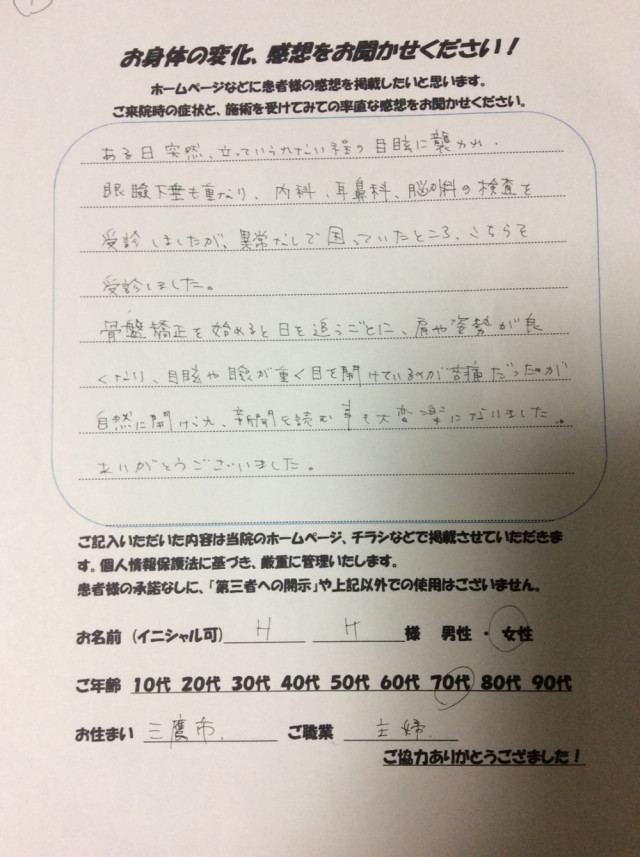 お身体の変化、感想をお聞かせください!
ホームページなどに患者様の感想を掲載したいと思います。
ご来院時の症状と、施術を受けてみての率直な感想をお聞かせください。
ある日突然、立っていられない程の目眩に襲われ、
眼瞼下垂も重なり、内科、耳鼻科、脳外科の検査を
受診しましたが、異常なしで困っていたところ、こちらを
受診しました。
骨盤矯正を始めると日を追うごとに、肩や姿勢が良
くなり、目眩や瞼が重く目を開けているのが苦痛だったのが
自然に開けられ、新聞を読む事も大変楽になりました。
ありがとうございました。
ご記入いただいた内容は当院のホームページ、チラシなどで掲載させていただきま
す。個人情報保護法に基づき、厳重に管理いたします。
患者様の承諾なしに、「第三者への開示」や上記以外での使用はございません。
お名前(イニシャル可) H H 様 男性・女性
ご年齢 10代 20代 30代 40代 50代 60代 70代 80代 90代
お住まい 三鷹市 ご職業 主婦
ご協力ありがとうござました!